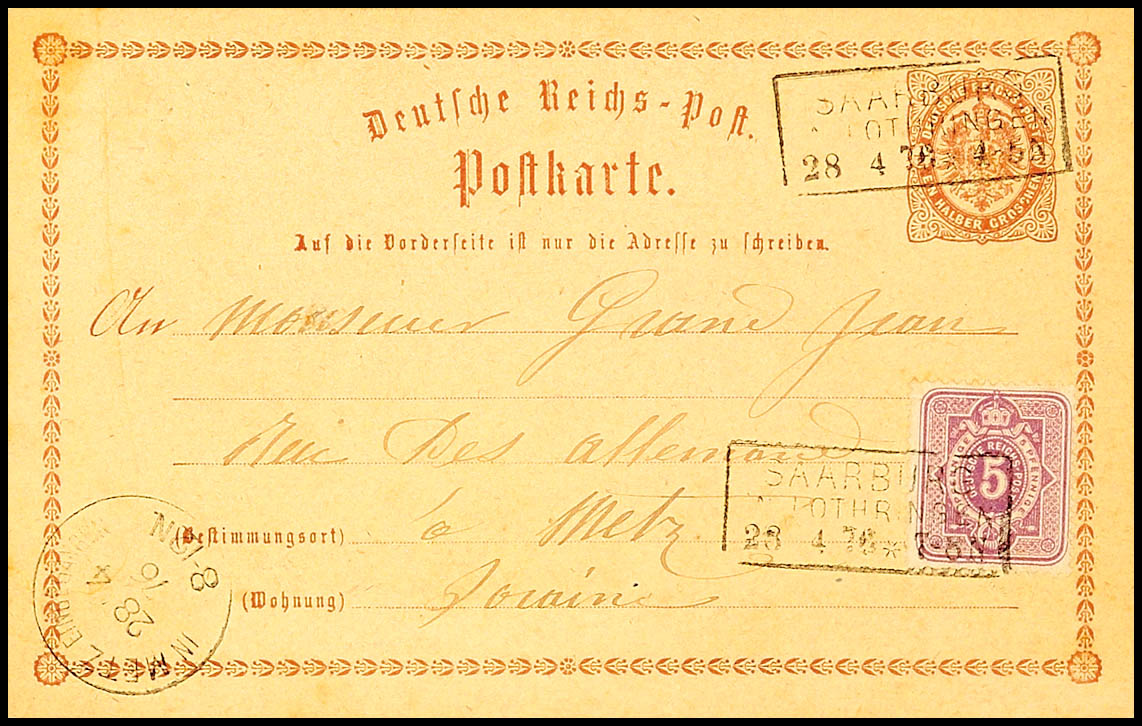 Deutsche Reichs-Post.
Postkarte.
Auf die Vorderseite ist nur die Adresse zu schreiben.
DEUTSCHE REICHSPOST
EIN HALBER GROSCHEN
SAARBURG
LOTHRINGEN
28 4 76 * 4-5N
An Monsieur Grand Jean
des allemand
à Metz
(Bestimmungsort)
(Wohnung)
5 PFENNIGE
DEUTSCHE REICHS-POST
5
SAARBURG
LOTHRINGEN
28 4 76 *
IN METZ EING
28 4 76
8-19N